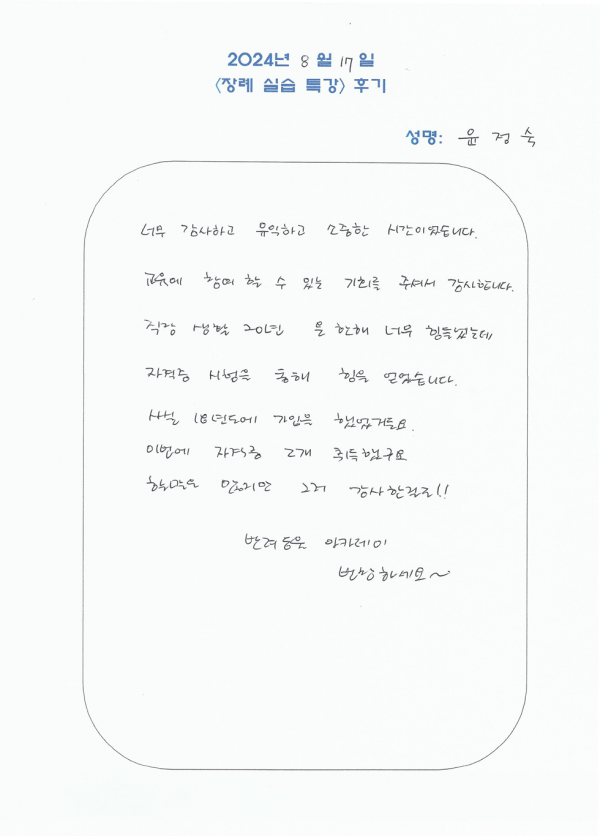 2024년 8월 17일
<장례 실습 특강> 후기
성명: 윤 정 숙
너무 감사하고 유익하고 소중한 시간이였습니다.
교육에 참여 할 수 있는 기회를 주셔서 감사합니다.
직장 생활 20년 올 한해 너무 힘들었는데
자격증 시험을 통해 힘을 얻었습니다.
사실 18년도에 가입을 했었거든요.
이번에 자격증 2개 취득했구요
할말은 많지만 그저 감사한걸로!!
반려동물 아카데미
번창하세요~